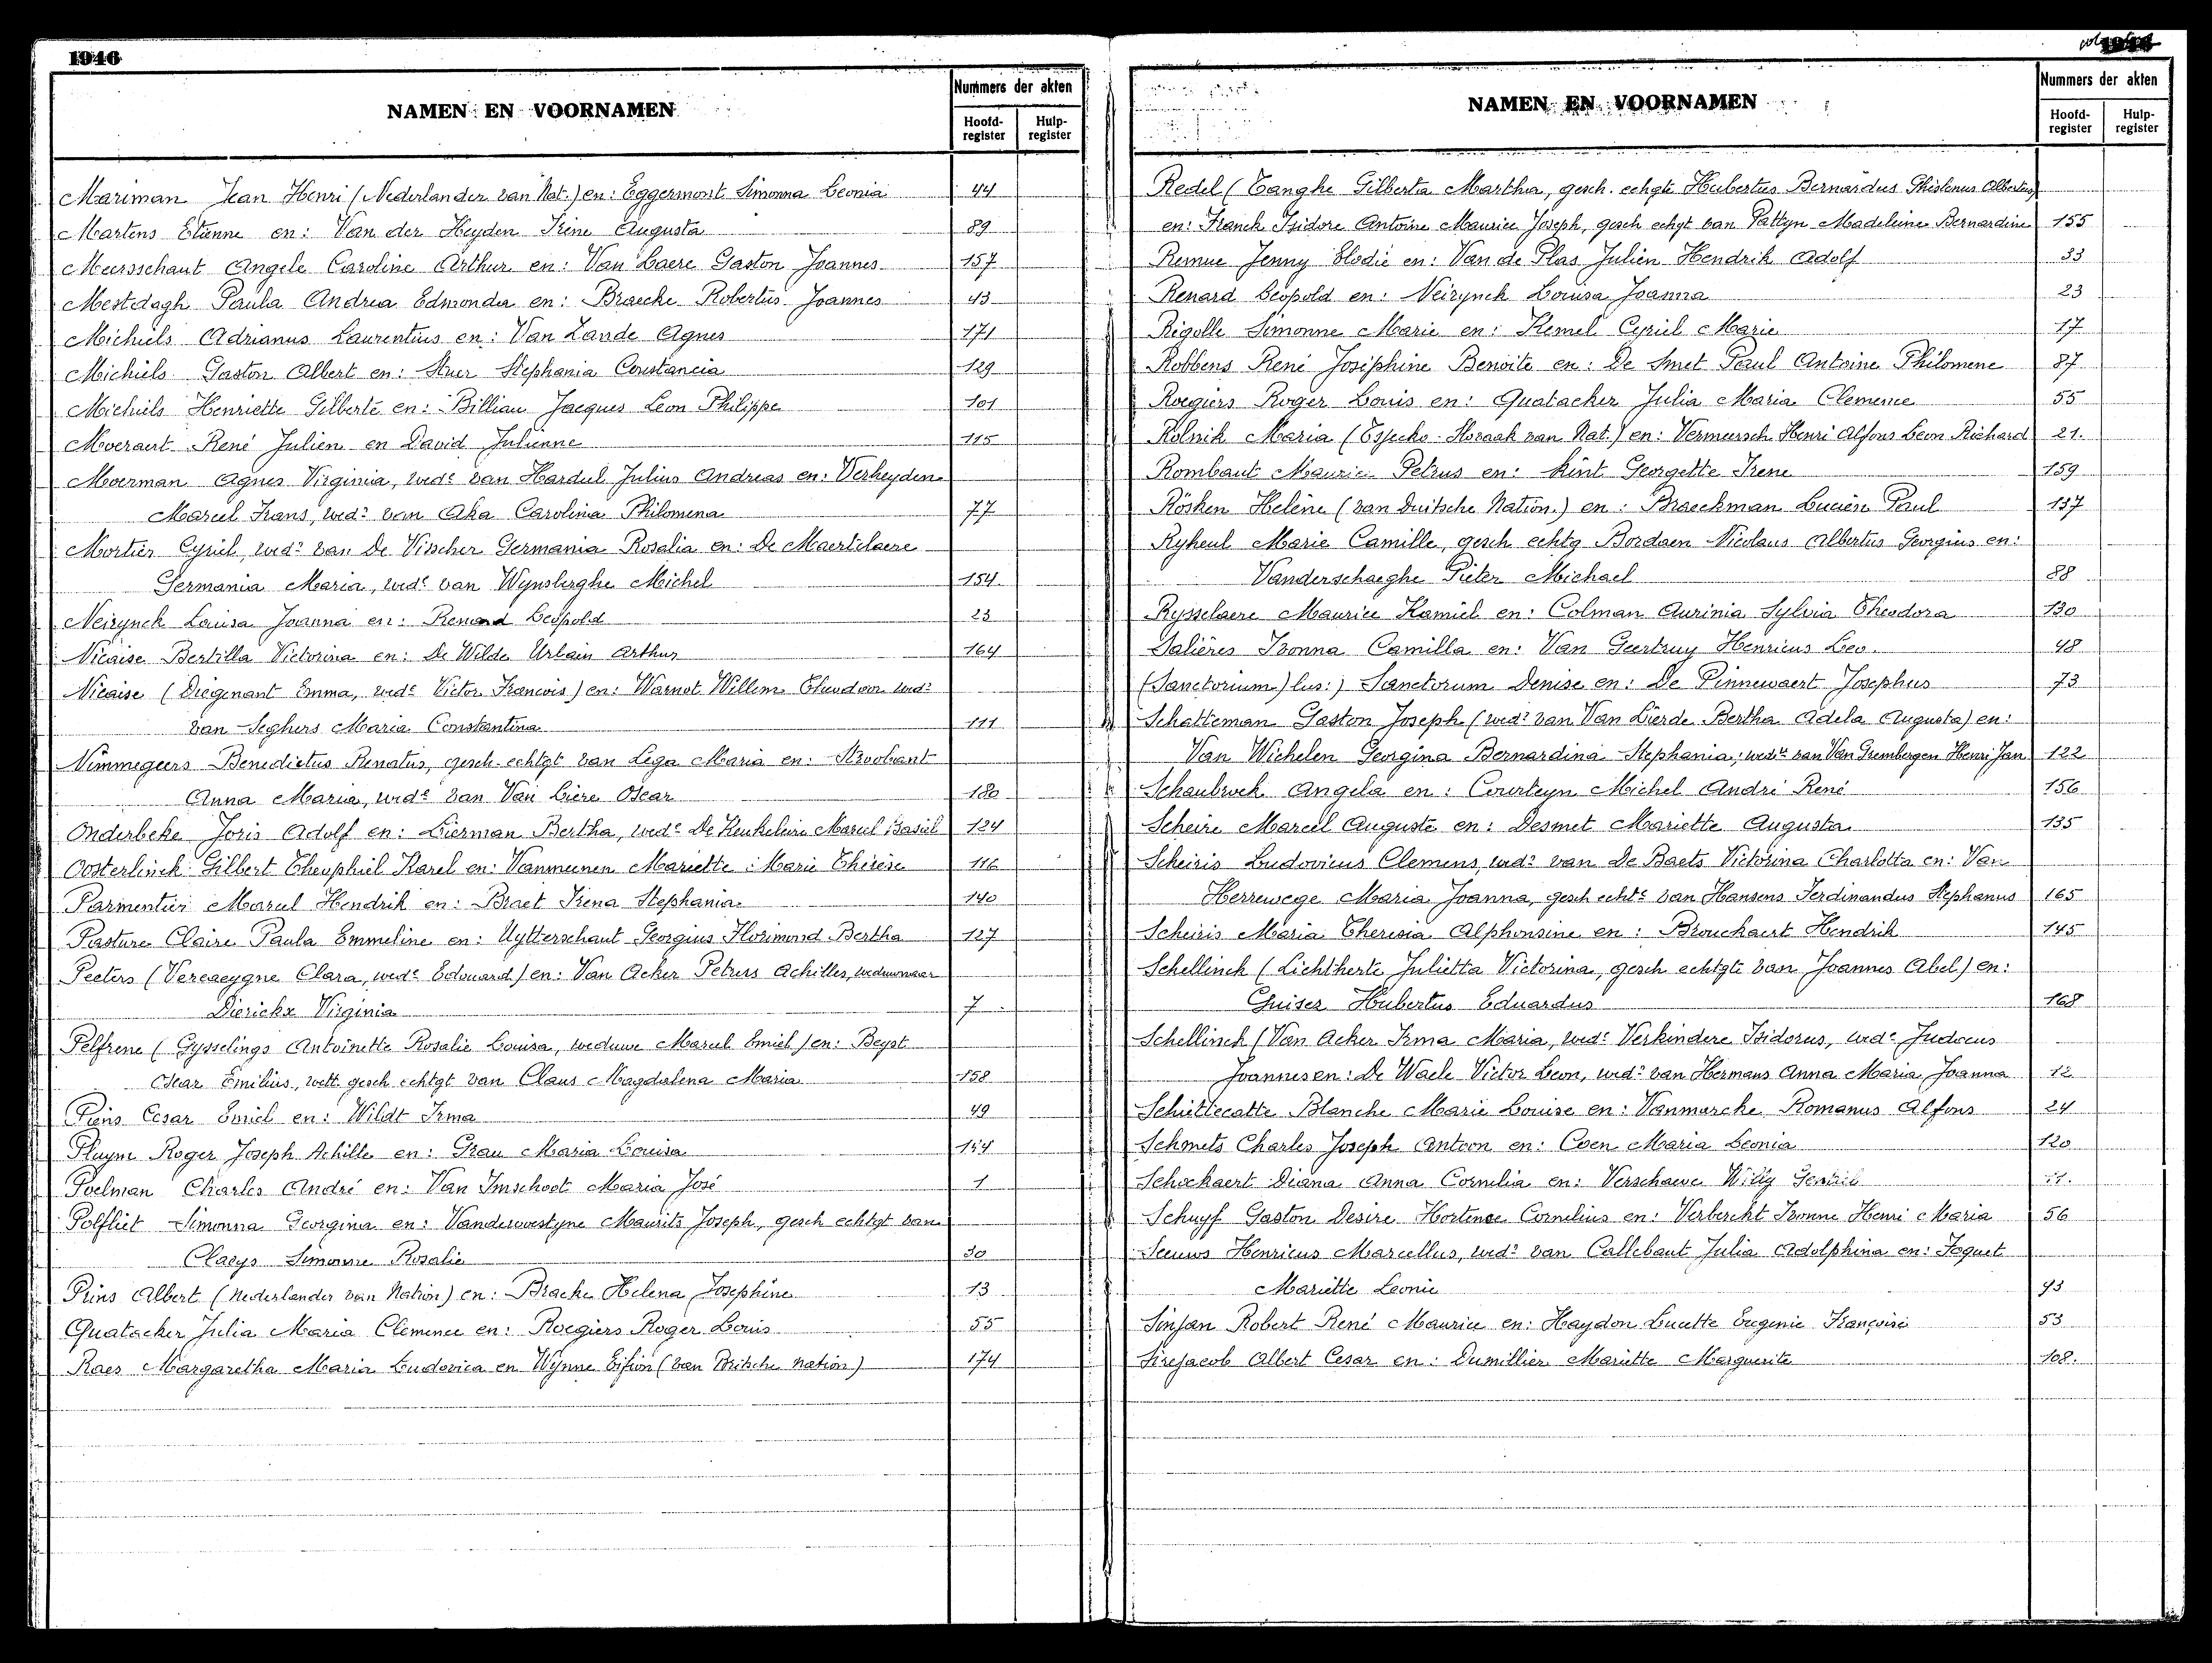 1946
NAMEN EN VOORNAMEN
Nummers der akten
Hoofd-register
Hulp-register
Mariman Jean Henri (Nederlander van Nat.) en: Eggermont Simonna Leonia 44
Martens Etienne en: Van der Heyden Irène Augusta 89
Meersschaut Angele Caroline Arthur en: Van Laere Gaston Joannes 157
Mestdagh Paula Andrea Edmonda en: Braecke Robertus Joannes 43
Michiels Adrianus Laurentius en: Van Lande Agnes 171
Michiels Gaston Albert en: Stuer Stephania Constancia 129
Michiels Henriette Gilberte en: Billiau Jacques Leon Philippe 101
Moeraert René Julien en David Julienne 115
Moerman Agnes Virginia, wede van Hardul Julius Andreas en: Verheyden
Marcel Frans, wedr van Aka Carolina Philomena 77
Mortier Cyriel, wedr van De Visscher Germania Rosalia en: De Maertelaere
Germania Maria, wede van Wynsberghe Michel 154
Neirynck Louisa Joanna en: Renard Leopold 23
Nicaise Bertilla Victorina en: De Wilde Urbain Arthur 164
Nicaise (Diegenant Emma, wede Victor Francois) en: Warnot Willem Theodoor wedr
van Seghers Maria Constantina 111
Nimmegeers Benedictus Renatus, gesch. echtgt van Lega Maria en: Stroobant
Anna Maria, wede van Van Liere Oscar 180
Onderbeke Joris Adolf en: Lierman Bertha, wede De Keukeleire Marcel Basiel 124
Oosterlinck Gilbert Theophiel Karel en: Vanmeenen Mariette Marie Therese 116
Parmentier Marcel Hendrik en: Braet Irena Stephania 140
Pasture Claire Paula Emmeline en: Uytterschaut Georgius Florimond Bertha 127
Peeters (Vercaeygne Clara, wede Edouard) en: Van Acker Petrus Achilles, weduwnaar
Dierickx Virginia 7
Pelfrene (Gysselings Antoinette Rosalie Louisa, weduwe Marcel Emiel) en: Beyst
Oscar Emilius, wett. gesch echtgt van Claus Magdalena Maria 158
Piens Cesar Emiel en: Wildt Irma 49
Pluym Roger Joseph Achille en: Grau Maria Louisa 144
Poelman Charles André en: Van Imschoot Maria José 1
Polfliet Simonna Georgina en: Vandewoestyne Maurits Joseph, gesch echtgt van
Claeys Simonne Rosalie 30
Prins Albert (Nederlander van Nation) en: Bracke Helena Josephine 13
Quatacker Julia Maria Clemence en: Roegiers Roger Louis 55
Raes Margaretha Maria Ludovica en Wynne Eifion (van Britsche nation) 174
NAMEN EN VOORNAMEN
Nummers der akten
Hoofd-register
Hulp-register
Redel (Tanghe Gilberta Martha, gesch. echgte Hubertus Bernardus Ghislenus Albertus)
en: Franck Isidore Antoine Maurice Joseph, gesch echgt van Pattyn Madeleine Bernardine 155
Remue Jenny Elodie en: Van de Plas Julien Hendrik Adolf 33
Renard Leopold en: Neirynck Louisa Joanna 23
Rigolle Simonne Marie en: Kemel Cyriel Marie 17
Robbens René Josephine Benoite en: De Smet Paul Antoine Philomene 87
Roegiers Roger Louis en: Quatacker Julia Maria Clemence 55
Rolnik Maria (Tsjecko-Slovaak van Nat.) en: Vermeersch Henri Alfons Leon Richard 21.
Rombaut Maurice Petrus en: Kint Georgette Irene 159
Rösken Helène (van Duitsche Nation.) en: Braeckman Lucien Paul 137
Rykeul Marie Camille, gesch echtg Bordaen Nicolaus Albertus Georgius en:
Vanderschaeghe Pieter Michael 88
Rysselaere Maurice Kamiel en: Colman Aurinia Sylvia Theodora 130
Salières Ivonna Camilla en: Van Geertruy Henricus Leo. 48
(Sanctorium) lus:) Sanctorum Denise en: De Pinnewaert Josephus 73
Schatteman Gaston Joseph (wedr van Van Lierde Bertha Adela Augusta) en:
Van Wichelen Georgina Bernardina Stephania, wede van Van Grembergen Henri Jan 122
Schaubroek Angela en: Courteyn Michel André René 156
Scheire Marcel Auguste en: Desmet Mariette Augusta 135
Scheiris Ludovicus Clemens, wedr van De Baets Victorina Charlotta en: Van
Herrewege Maria Joanna, gesch echte van Hansens Ferdinandus Stephanus 165
Scheiris Maria Theresia Alphonsine en: Brouckaert Hendrik 145
Schellinck (Lichtherte Julietta Victorina, gesch echtgte van Joannes Abel) en:
Guiser Hubertus Eduardus 168
Schellinck (Van Acker Irma Maria, wede Verkindere Isidorus, wede Judocus
Joannes en: De Waele Victor Leon, wedr van Hermans Anna Maria Joanna 12
Schiettecatte Blanche Marie Louise en: Vanmarcke Romanus Alfons 24
Schmets Charles Joseph Antoon en: Coen Maria Leonia 120
Schockaert Diana Anna Cornelia en: Verschaeve Willy Gentiel
Schuyf Gaston Desire Hortense Cornelius en: Verberckt Ivonne Henri Maria 56
Seeuws Henricus Marcellus, wedr van Callebaut Julia Adolphina en: Jaquet
Mariette Leonie 93
Sinjan Robert René Maurice en: Haydon Lucette Eugenie Françoise 53
Sirejacob Albert Cesar en: Dumillier Mariette Marguerite 108.